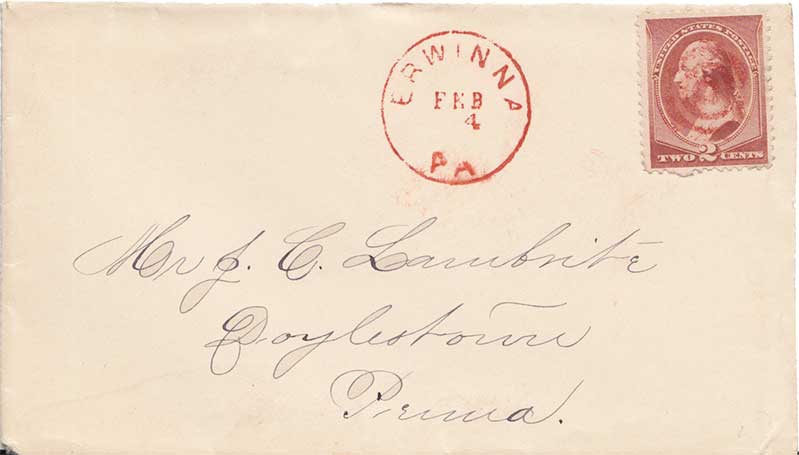 ERWINNA
FEB
4
PA
UNITED STATES POSTAGE
TWO 2 CENTS
Mr J. C. Lambrite
Doylestown
Penna.